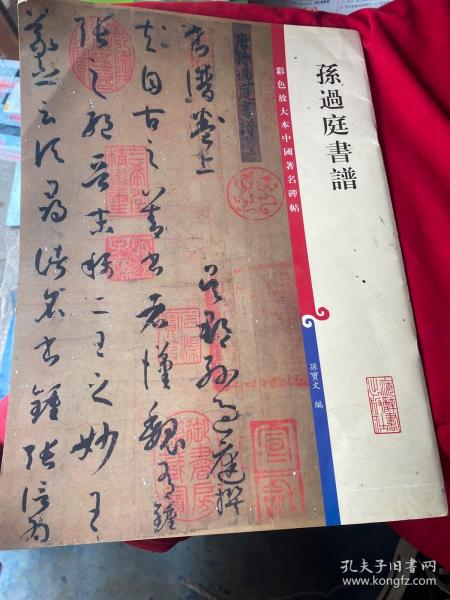 孫過庭書譜
彩色放大本中國著名碑帖
孫寶文 編
書譜卷上
吳郡孫過庭撰
夫自古之善書者漢魏有鍾
張之絕晉末稱二王之妙王
羲之云頃尋諸名書鍾張信為
孔夫子旧书网
www.kongfz.com